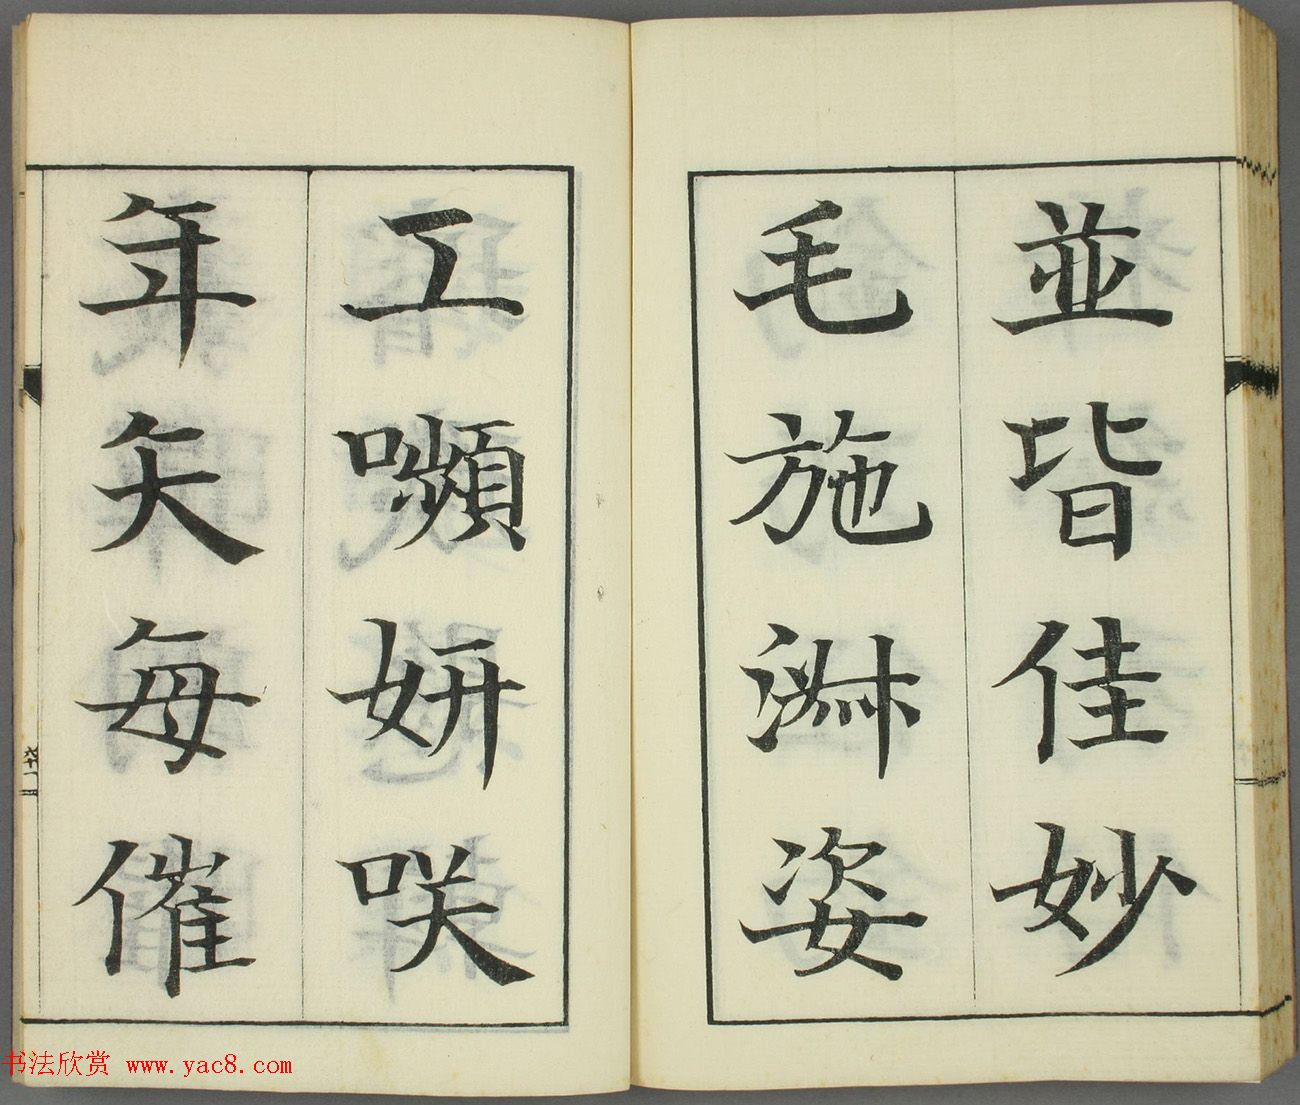 並皆佳妙
毛施淑姿
工嚬妍咲
年矢每催
书法欣赏 www.yac8.com